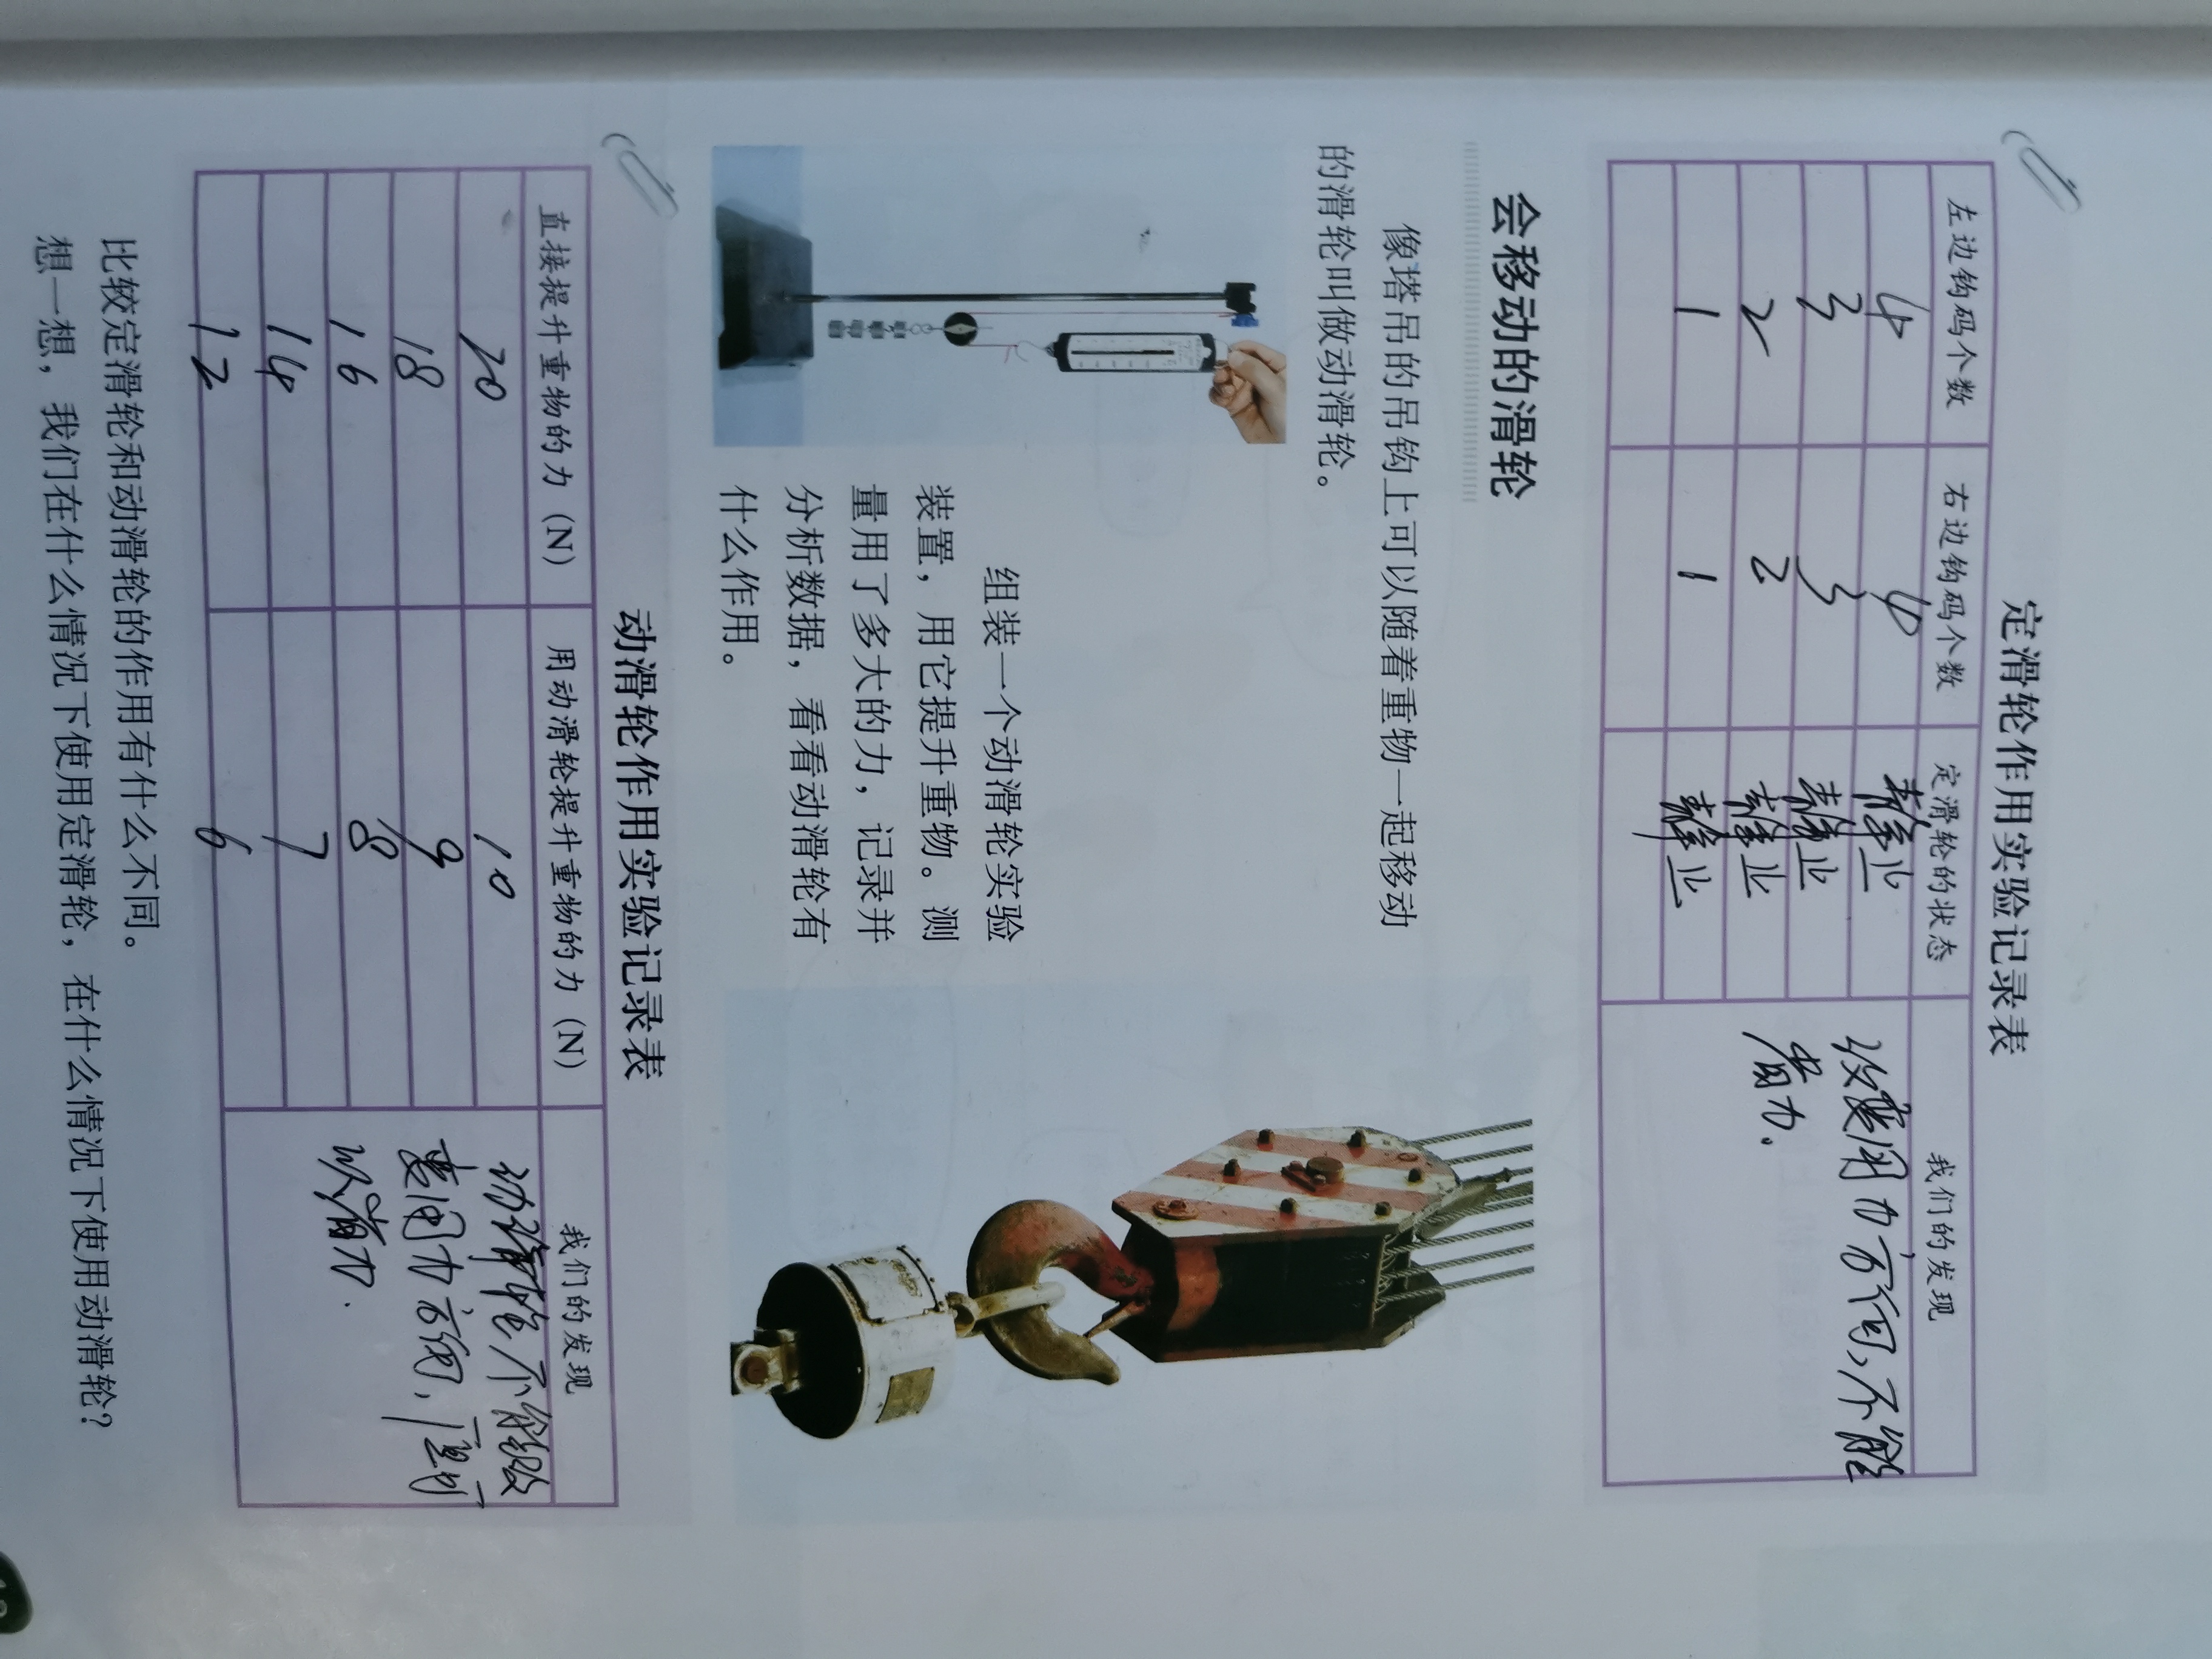 定滑轮作用实验记录表
左边钩码个数 右边钩码个数 定滑轮的状态 我们的发现
4 4 静止 改变用力方向,不能
3 3 静止 省力.
2 2 静止
1 1 静止
会移动的滑轮
像塔吊的吊钩上可以随着重物一起移动
的滑轮叫做动滑轮。
组装一个动滑轮实验
装置,用它提升重物。测
量用了多大的力,记录并
分析数据,看看动滑轮有
什么作用。
动滑轮作用实验记录表
直接提升重物的力(N) 用动滑轮提升重物的力(N) 我们的发现
20 10 动滑轮不能改
18 9 变用力方向,但可
16 8 以省力.
14 7
12 6
比较定滑轮和动滑轮的作用有什么不同。
想一想,我们在什么情况下使用定滑轮,在什么情况下使用动滑轮?